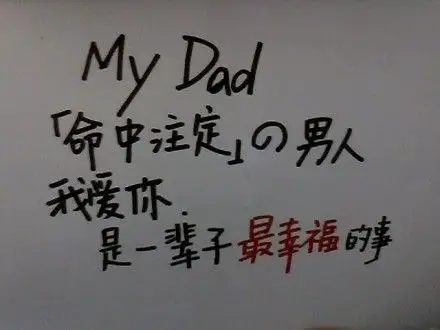 My Dad
「命中注定」の男人
我爱你.
是一辈子最幸福的事